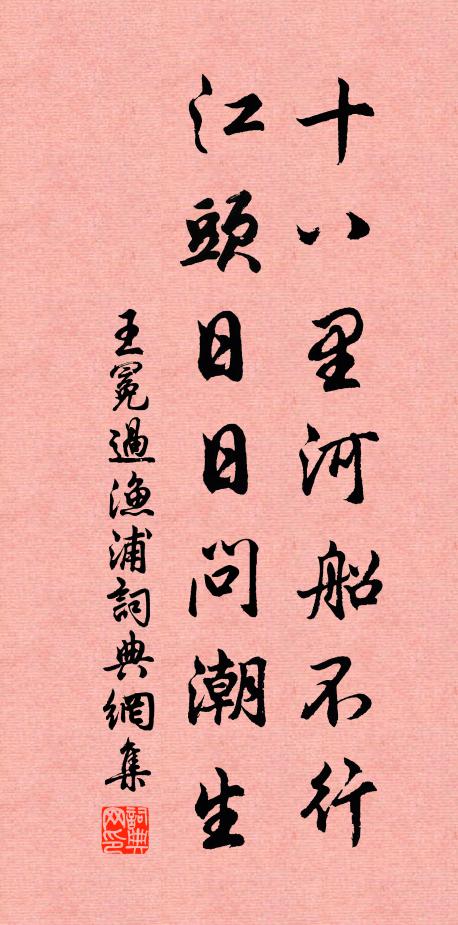 十八里河船不行
江頭日日問潮生
王冕過漁浦詞典網集
詞典网印